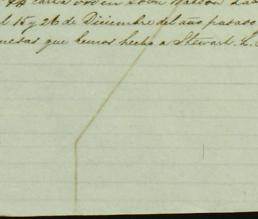 carta
l 15 y 26 de Diciembre del año pasado
mesas que hemos hecho a Stewart. L.